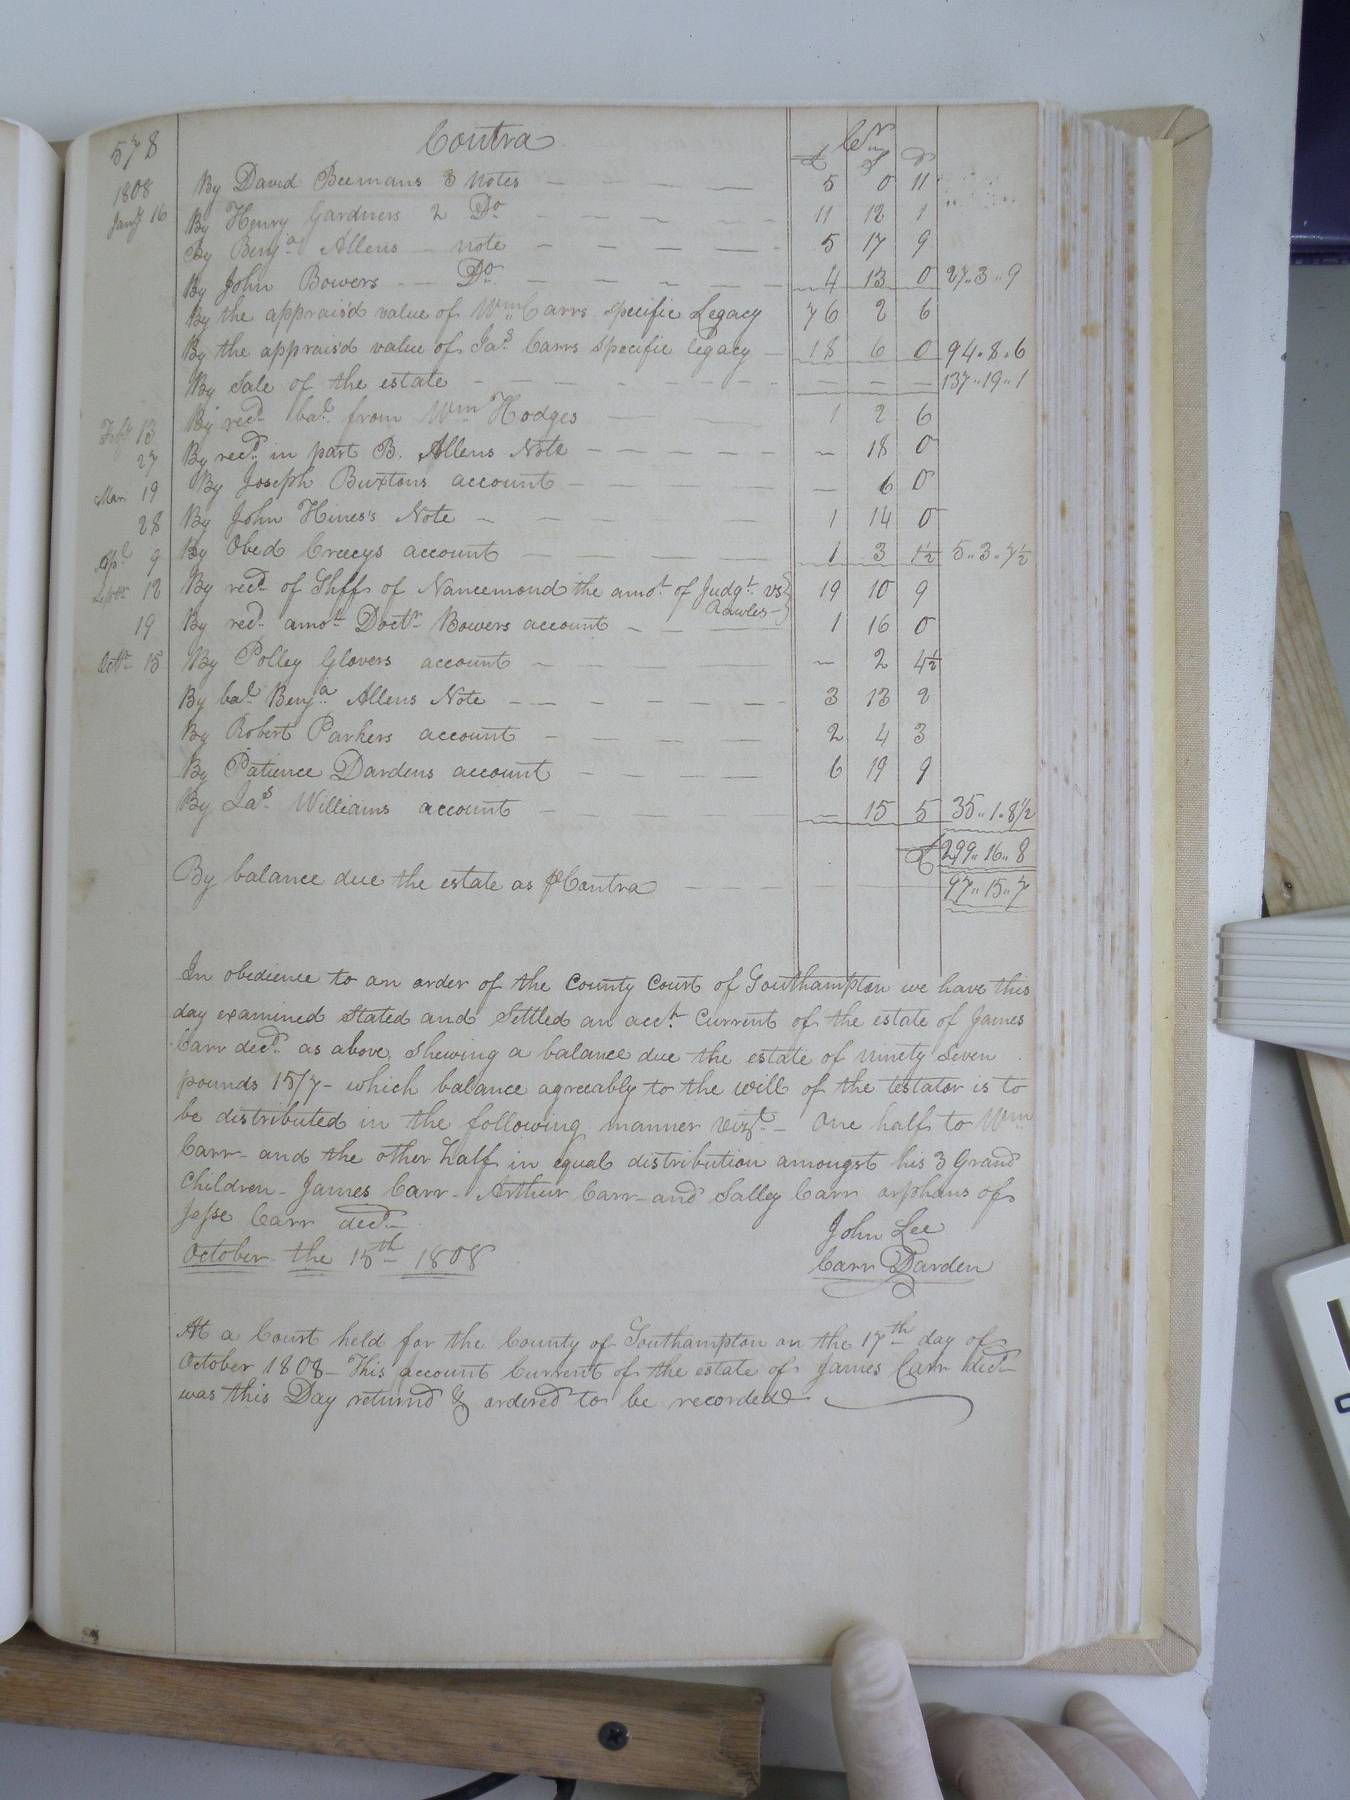 578 Contra Cr
£ S D
1808 By David Beemans 3 Notes 5 0 11
Jany 16 By Henry Gardners 2 Do 11 12 1
By Benja Allens note 5 17 9
By John Bowers Do 4 13 0 27..3..9
By the apprais'd value of Wm Carrs specific Legacy 76 2 6
By the apprais'd value of Jas Carrs specific legacy 18 6 0 94.8.6
By Sale of the estate 137..19..1
Feby 13 By recd bal from Wm Hodges 1 2 6
27 By recd in part B. Allens Note 18 0
Mar 19 By Joseph Buxtons account 6 0
28 By John Hines's Note 1 14 0
Apl 9 By Obed Creecys account 1 3 1½ 5..3..7½
12 By recd of Shff of Nancemond the amot of Judgt vs 19 10 9
Rawles
19 By recd amot Doctr Bowers account 1 16 0
Octr 15 By Polley Glovers account 2 4½
By bal Benja Allens Note 3 13 2
By Robert Parkers account 2 4 3
By Patience Dardens account 6 19 9
By Jas Williams account 15 5 35..1.8½
£299..16..8
By balance due the estate as ⅌ Contra 97..15..7
In obedience to an order of the County Court of Southampton we have this
day examined stated and Settled an acct Current of the estate of James
Carr decd as above, Shewing a balance due the estate of ninety Seven
pounds 15/7 - which balance agreeably to the will of the testator is to
be distributed in the following manner vizt - One half to Wm
Carr - and the other half in equal distribution amongst his 3 Grand
Children - James Carr - Arthur Carr - and Salley Carr orphans of
Jesse Carr decd
John Lee
October the 15th 1808 Carr Darden
At a Court held for the County of Southampton on the 17th day of
October 1808 - This account Current of the estate of James Carr decd
was this Day returnd & ordered to be recorded